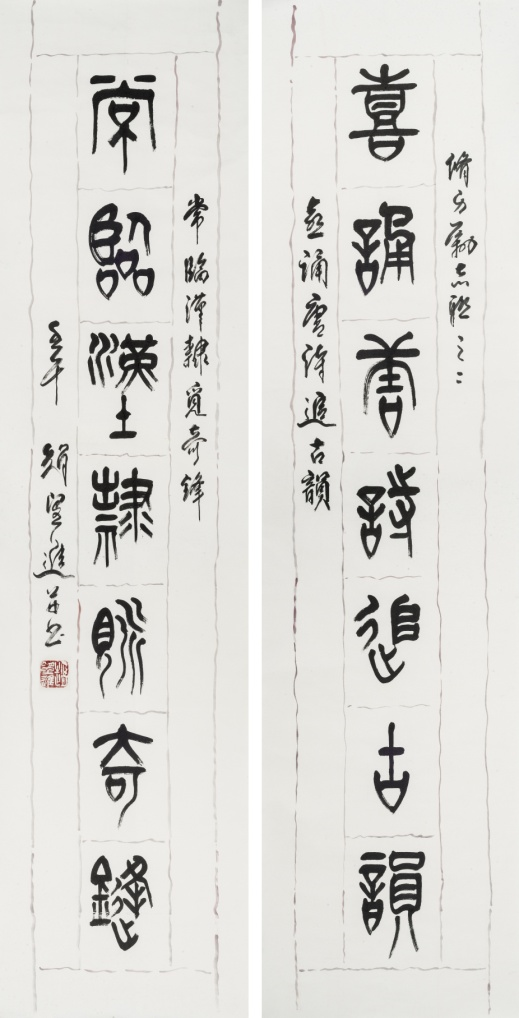 脩身勵志聯之二
喜誦唐詩追古韻
喜誦唐詩追古韻
常臨漢隸覓奇鋒
常臨漢隸覓奇鋒
并书